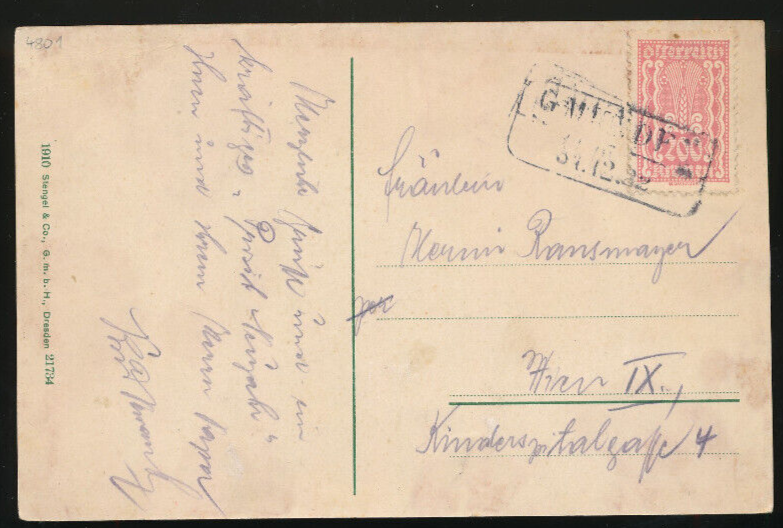 4801
Herzliche Grüße und ein
kräftiges "Prosit Neujahr"
Ihnen und Ihrem Herrn Papa
1910 Stengel & Co., G. m. b. H., Dresden 21734
Österreich
200
Kronen
31.12.22
Fräulein
Hermi Ransmayer
per
Wien IX.,
Kinderspitalgasse 4